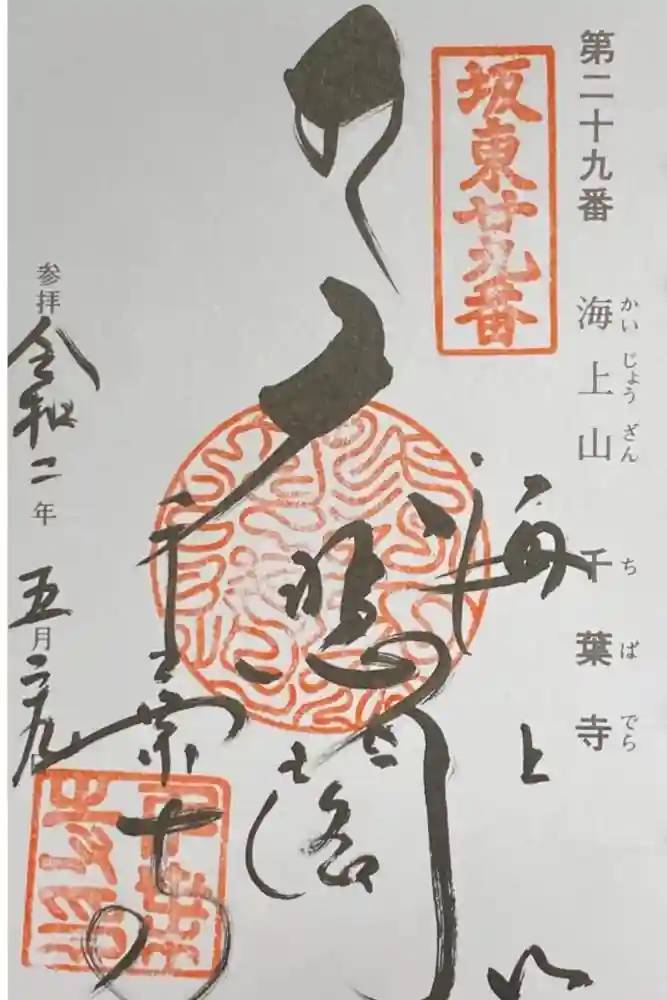 第二十九番　海上山　千葉寺
かいじょうざん　ちばでら
坂東廿九番
海上山
大悲閣
千葉寺
参拝 令和二年五月二九